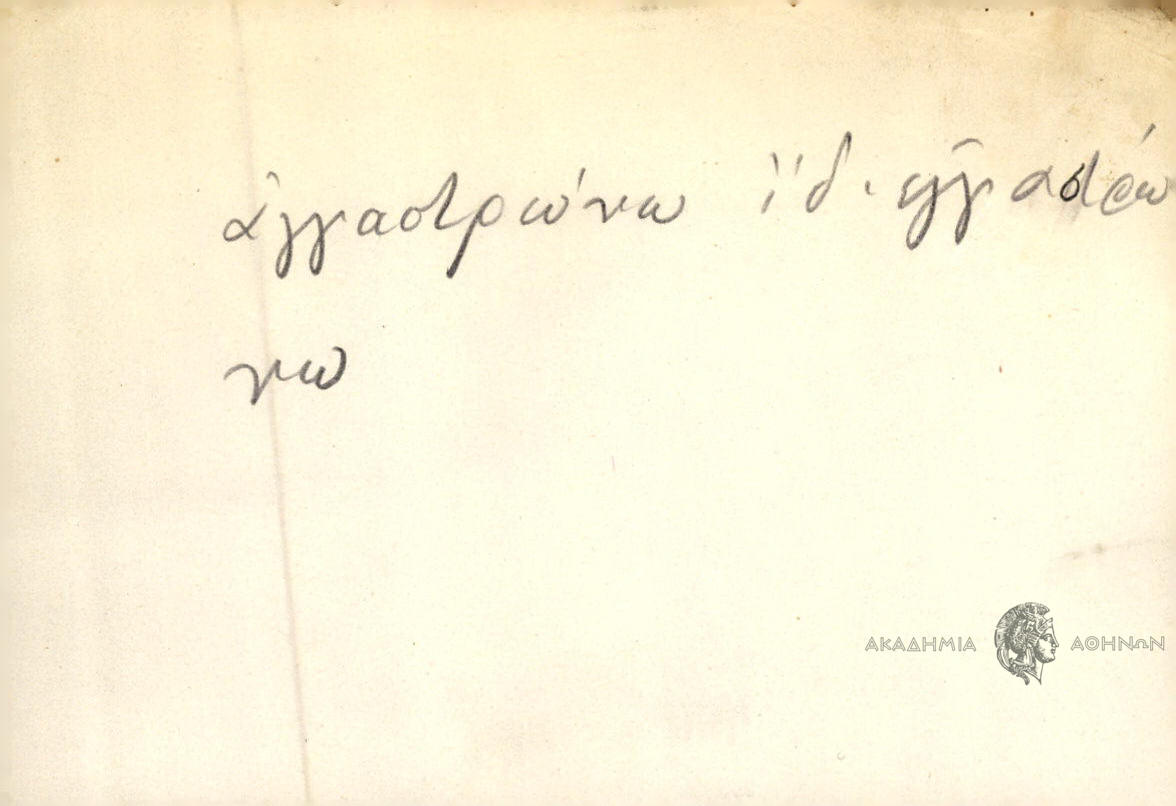 ἀγγαστρώνω ἰδ. ἐγγαστρώ
νω
ΑΚΑΔΗΜΙΑ ΑΘΗΝΩΝ